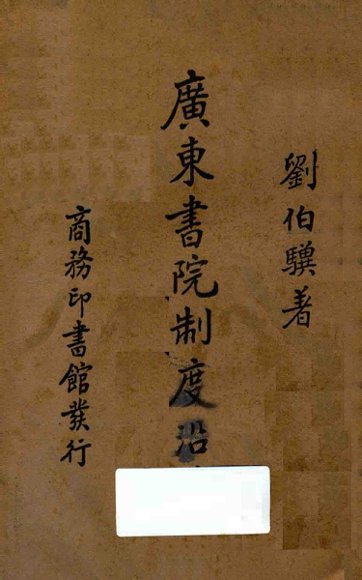 劉伯驥著
廣東書院制度沿
商務印書館發行